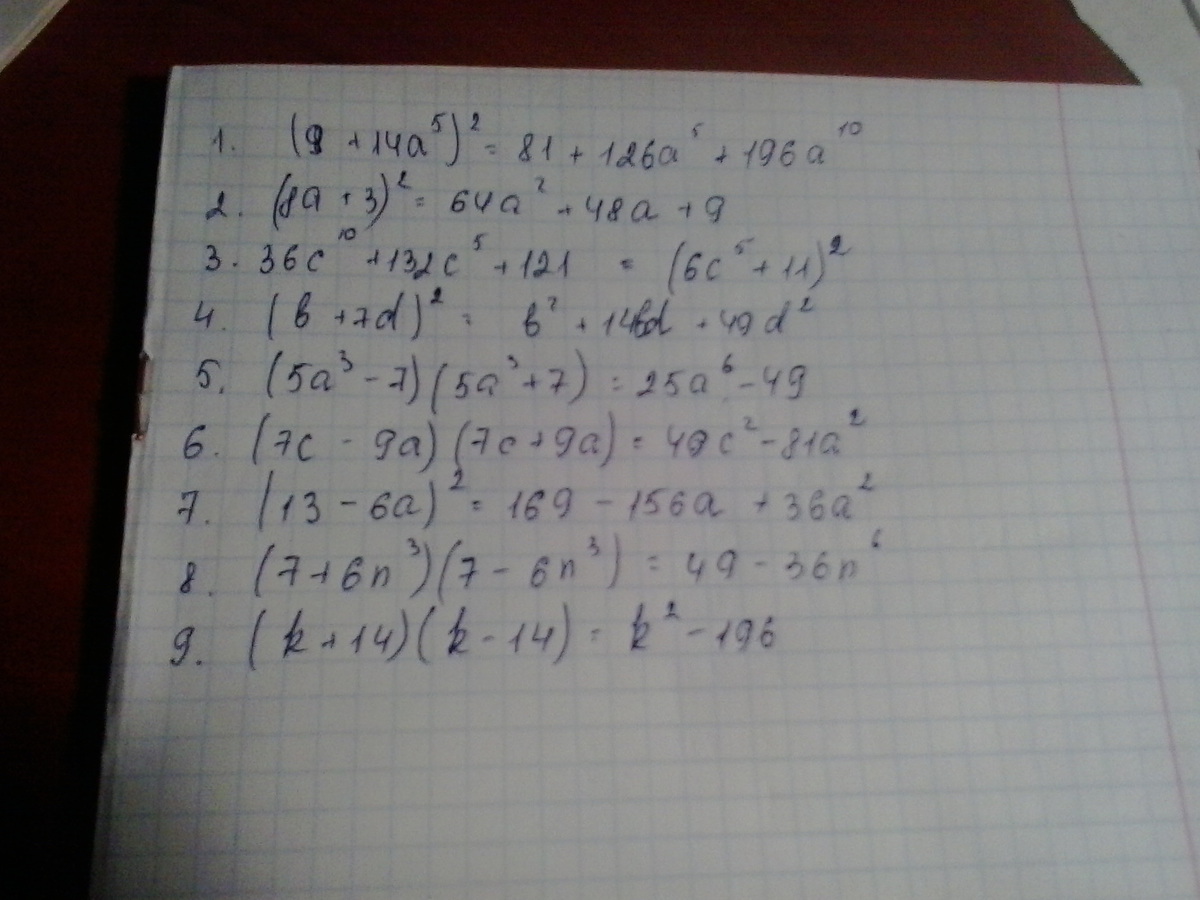 1. (9 + 14a⁵)² = 81 + 126a⁵ + 196a¹⁰
2. (8a + 3)² = 64a² + 48a + 9
3. 36c¹⁰ + 132c⁵ + 121 = (6c⁵ + 11)²
4. (b + 7d)² = b² + 14bd + 49d²
5. (5a³ - 7)(5a³ + 7) = 25a⁶ - 49
6. (7c - 9a)(7c + 9a) = 49c² - 81a²
7. (13 - 6a)² = 169 - 156a + 36a²
8. (7 + 6n³)(7 - 6n³) = 49 - 36n⁶
9. (k + 14)(k - 14) = k² - 196